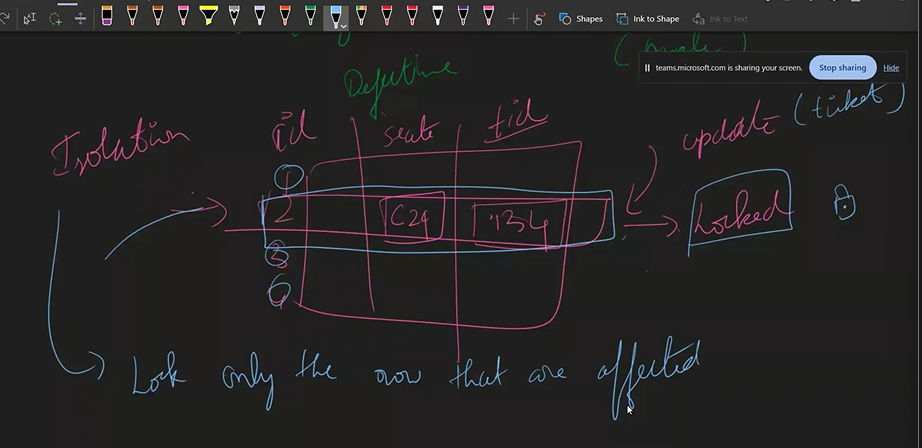 Shapes Ink to Shape Ink to Text
teams.microsoft.com is sharing your screen. Stop sharing Hide
Defective
Isolation id seats tid update (ticket)
1
2 C24 1234 Locked
3
4
Lock only the row that are affected